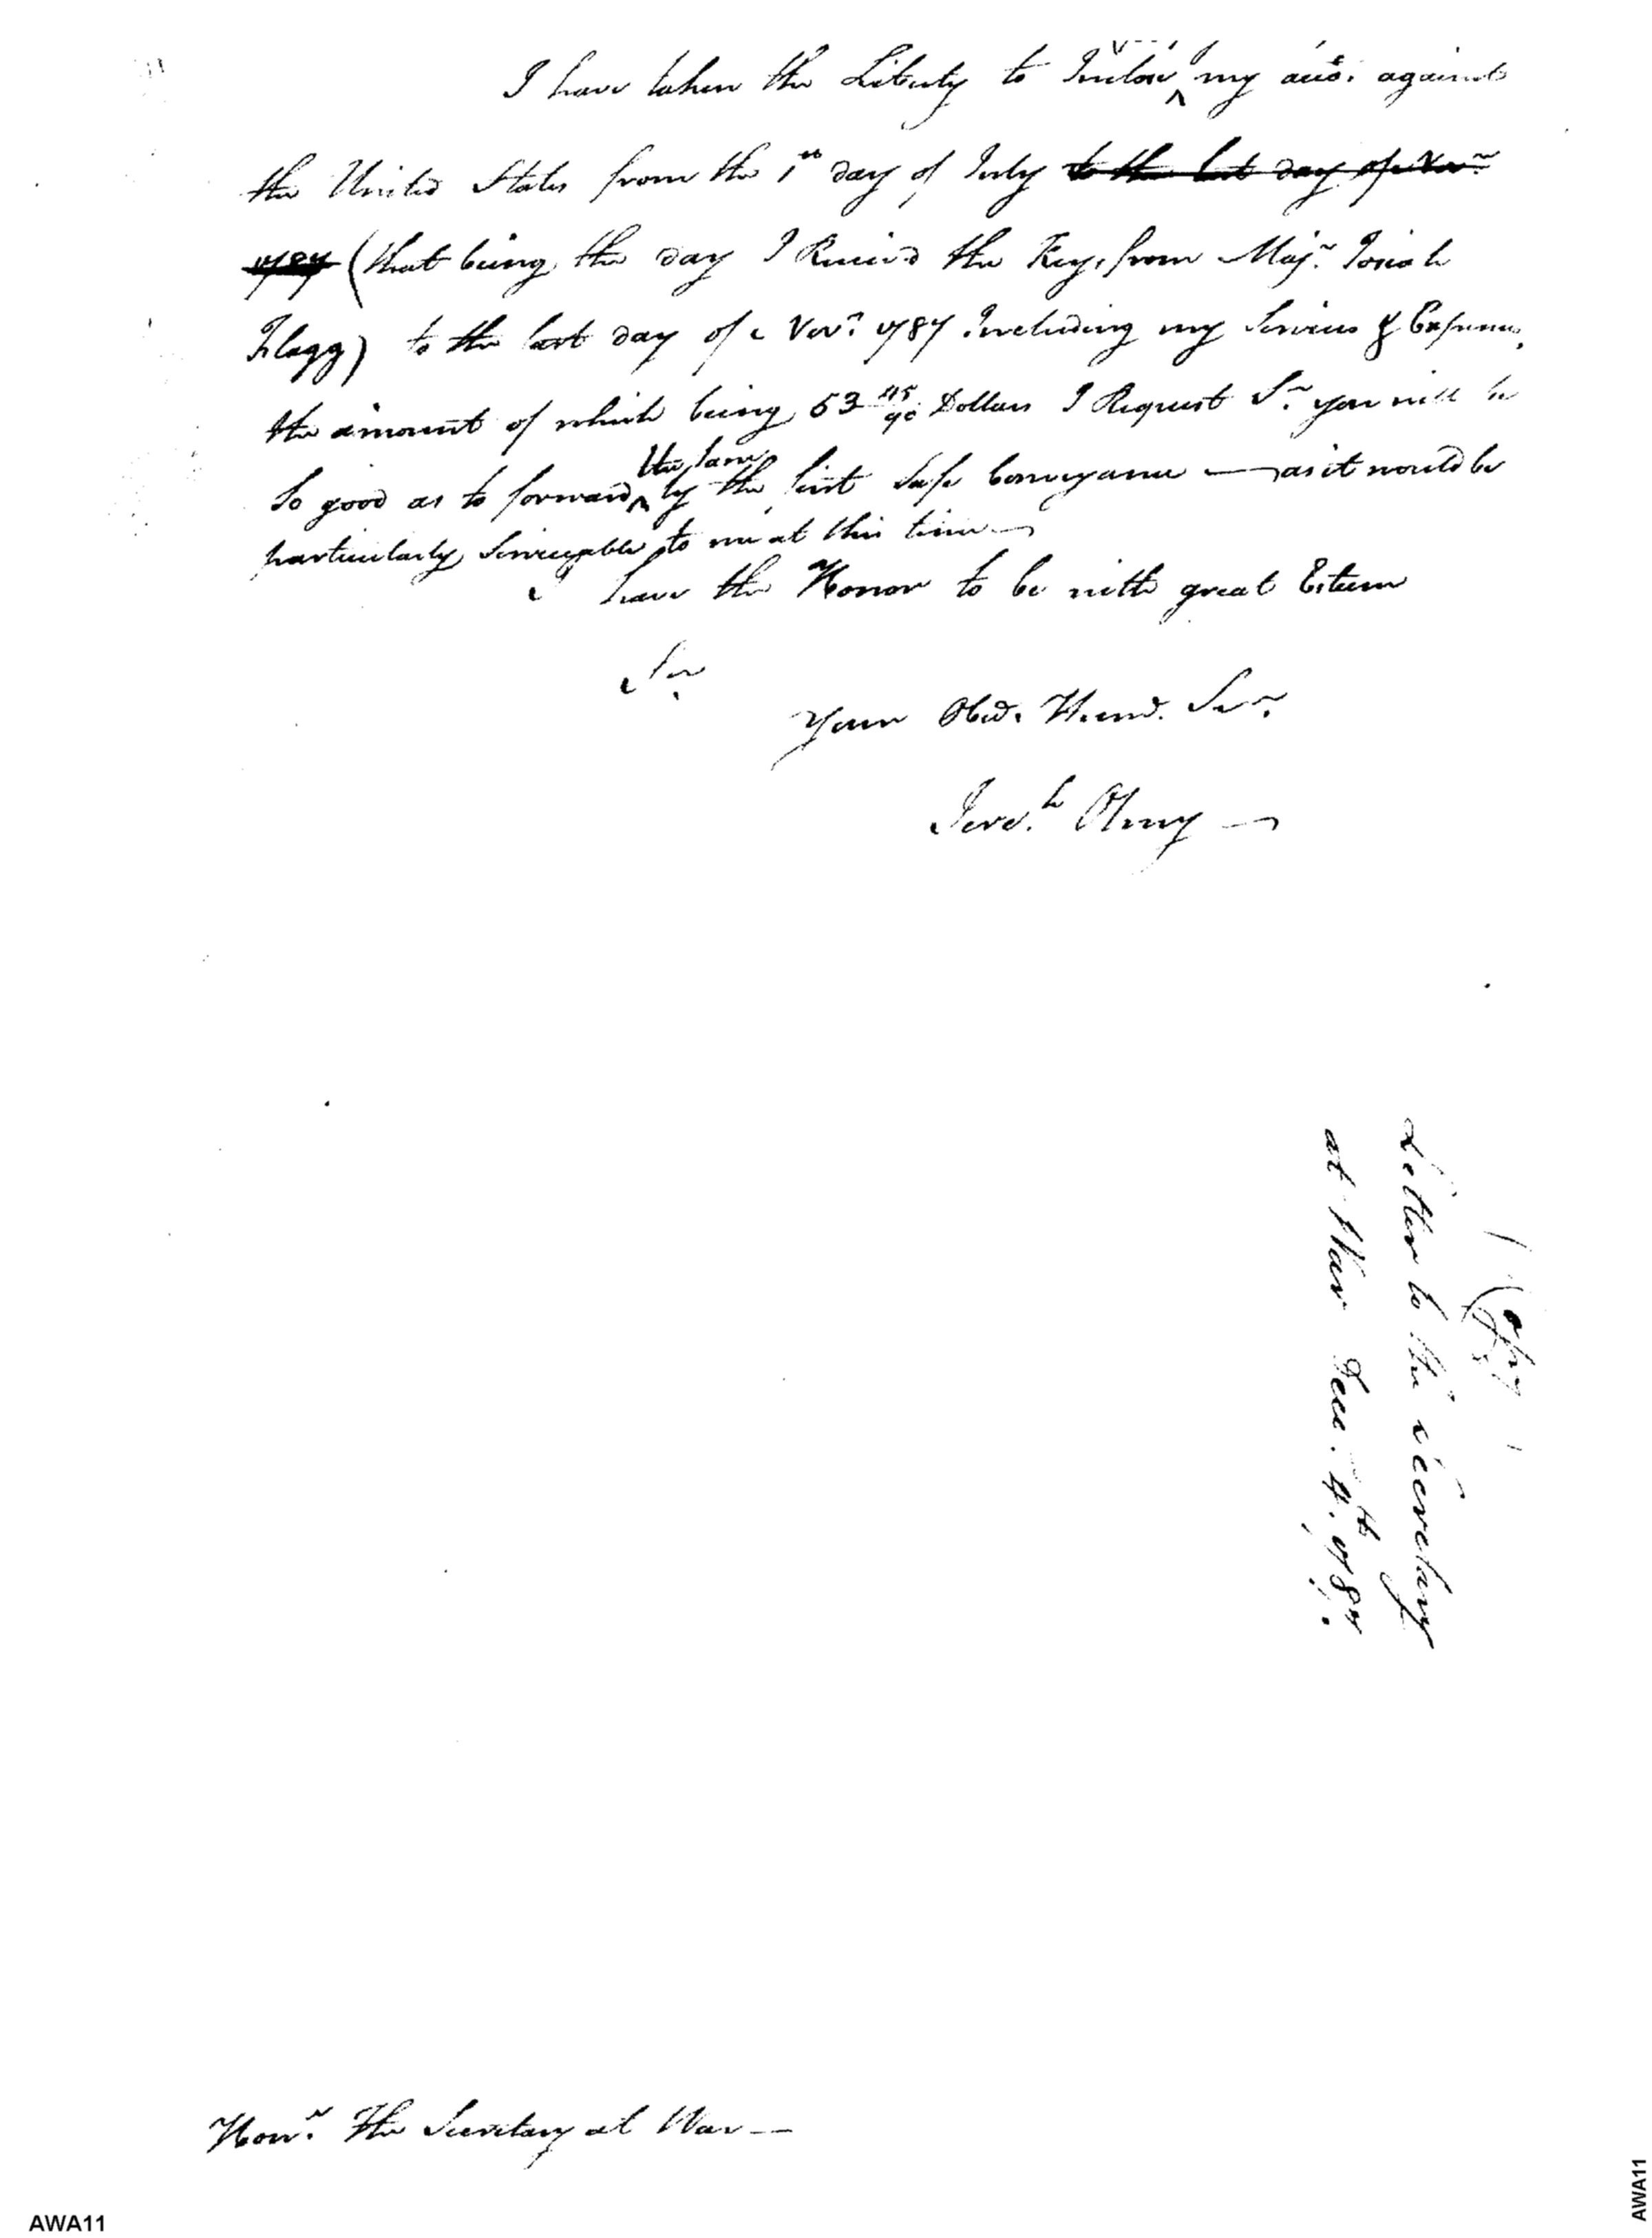 I have taken the Liberty to Inclose my acco. against
the United States from the 1st day of July to the last day of Novr
1787 (that being the day I Receivd the Key, from Majr. Josiah
Flagg) to the last day of Novr. 1787 Including my Services & Expences,
the amount of which being 53 45/90 Dollars I Request Sr. you will be
So good as to forward the same by the first Safe Conveyance — as it would be
particularly Serviceable to me at this time —
I have the Honor to be with great Esteem
Sir
Your Obed. Humb. Serr.
Jere.h Olney —
Copy
Letter to the Secretary
at War Dec. 4th. 1787
Honr. The Secretary at War —
AWA11
AWA11